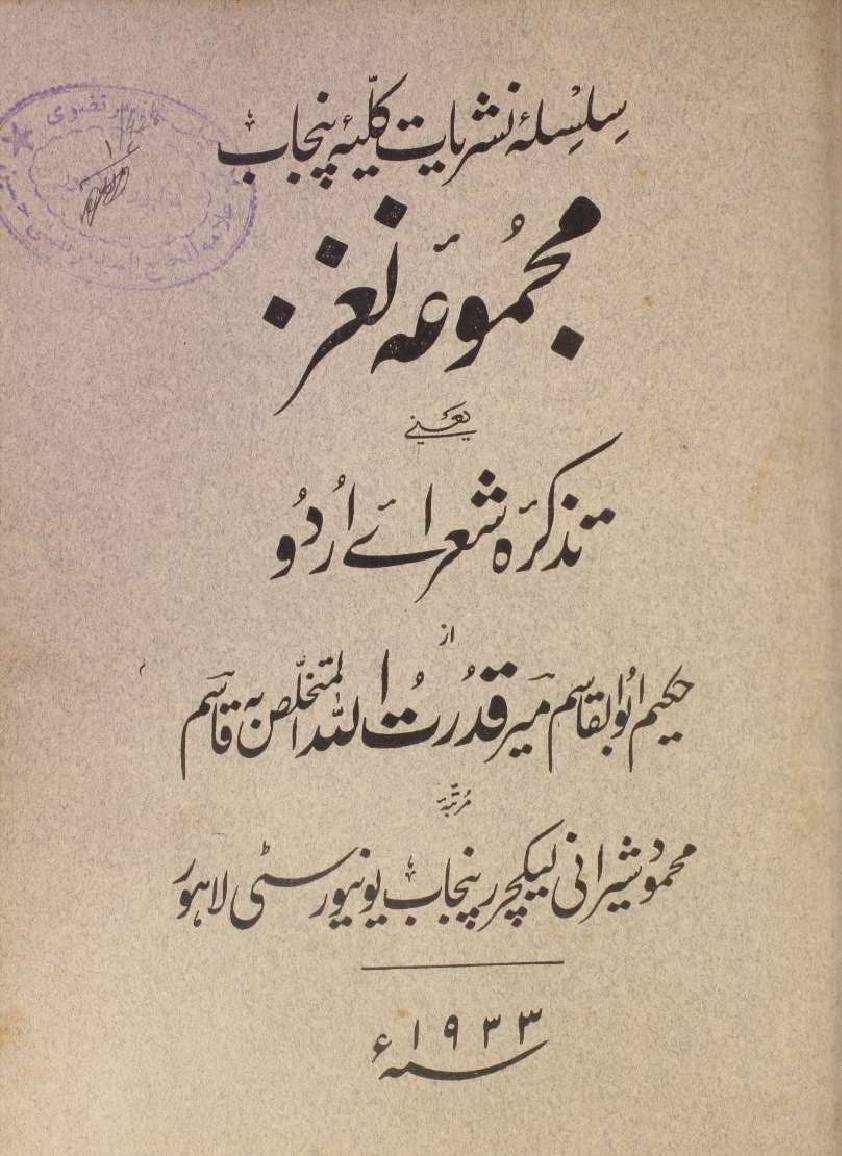 سِلسِلۂ نشریات کلّیۂ پنجاب
مجمُوعۂ نغز
یعنے
تذکرۂ شعرائے اُردُو
از
حکیم ابُوالقاسم میر قدرتُ اللہ المتخلّص بہ قاسم
مُرتّبہ
محمُود شیرانی لیکچرر پنجاب یونیورسٹی لاہور
سنہ ۱۹۳۳ء